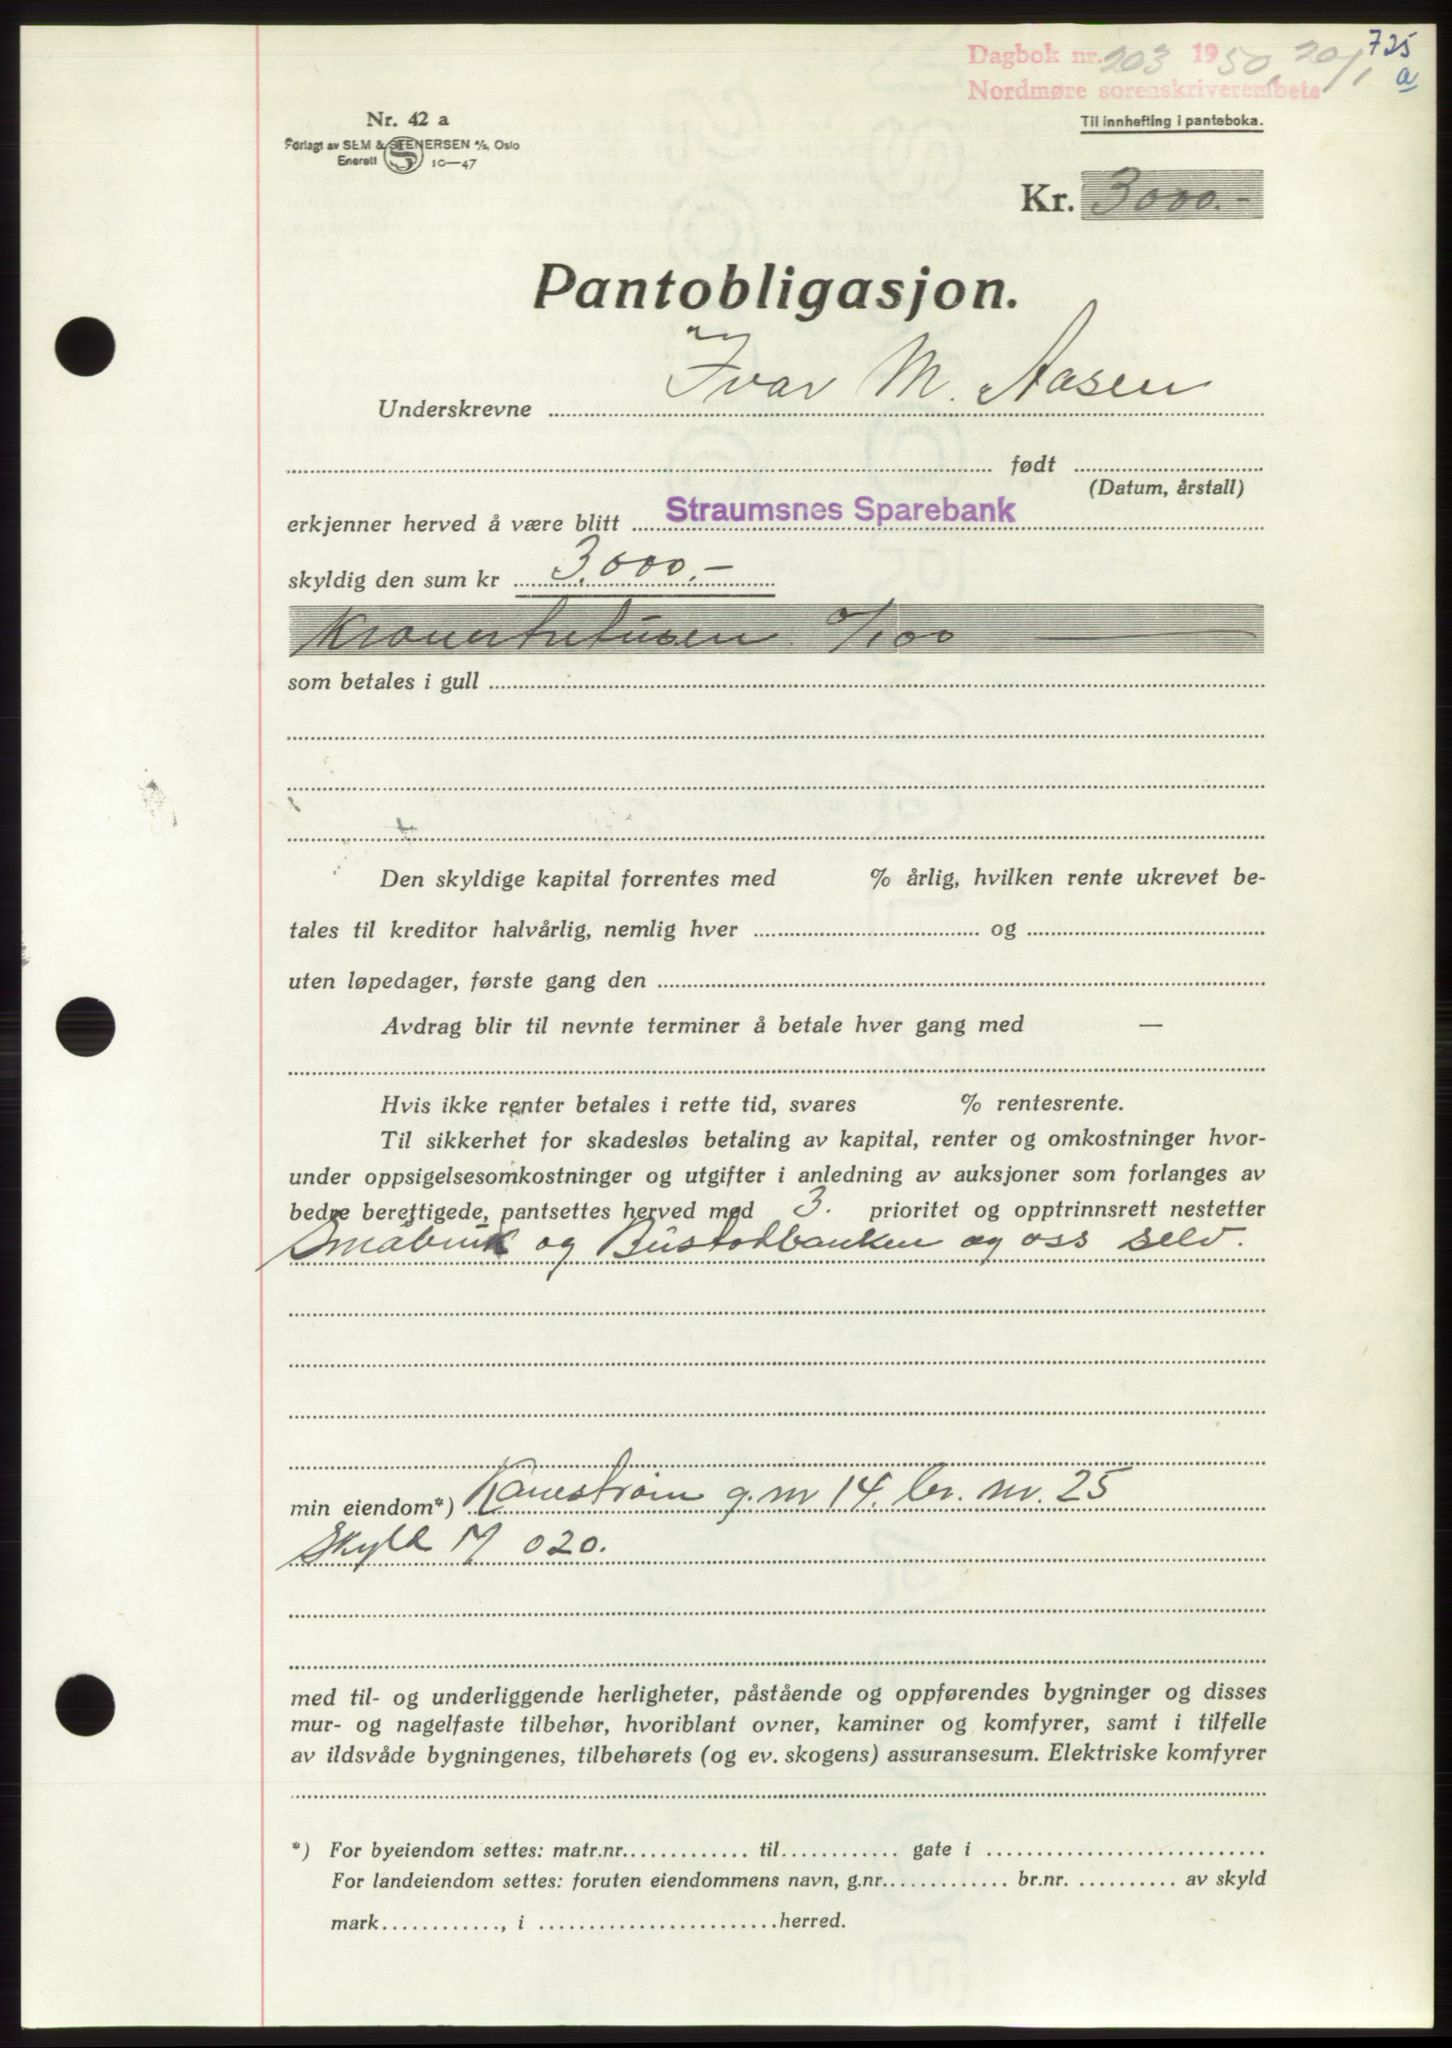 725
a
Dagbok nr. 203 1950, 20/1
Nordmøre sorenskriverembete
Til innhefting i panteboka.
Nr. 42 a
Forlagt av SEM & STENERSEN A/S, Oslo
Enerett 10—47
Kr. 3000.-
Pantobligasjon.
Underskrevne Ivar M. Aasen
født
(Datum, årstall)
erkjenner herved å være blitt Straumsnes Sparebank
skyldig den sum kr 3.000.-
Kronertretusen 0/100
som betales i gull
Den skyldige kapital forrentes med % årlig, hvilken rente ukrevet be-
tales til kreditor halvårlig, nemlig hver og
uten løpedager, første gang den
Avdrag blir til nevnte terminer å betale hver gang med —
Hvis ikke renter betales i rette tid, svares % rentesrente.
Til sikkerhet for skadesløs betaling av kapital, renter og omkostninger hvor-
under oppsigelsesomkostninger og utgifter i anledning av auksjoner som forlanges av
bedre berettigede, pantsettes herved med 3. prioritet og opptrinnsrett nestetter
Småbruk og Bustadbanken og oss selv.
min eiendom*) Kanestrøm g. nr 14. br. nr. 25
Skyld M 020.
med til- og underliggende herligheter, påstående og oppførendes bygninger og disses
mur- og nagelfaste tilbehør, hvoriblant ovner, kaminer og komfyrer, samt i tilfelle
av ildsvåde bygningenes, tilbehørets (og ev. skogens) assuransesum. Elektriske komfyrer
*) For byeiendom settes: matr.nr............. til............ gate i ...........................
For landeiendom settes: foruten eiendommens navn, g.nr............. br.nr. .......... av skyld
mark............, i ........................herred.